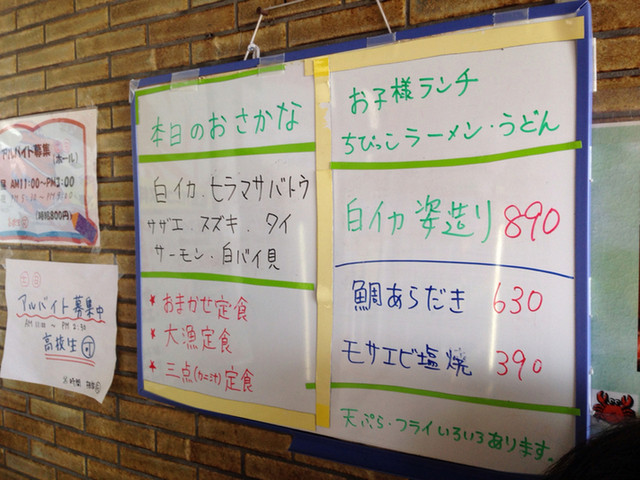 本日のおさかな
白イカ.ヒラマサバトウ
サザエ.スズキ.タイ
サーモン.白バイ貝
★おまかせ定食
★大漁定食
★三点(カニ汁)定食
お子様ランチ
ちびっこラーメン・うどん
白イカ姿造り 890
鯛あらだき 630
モサエビ塩焼 390
天ぷら・フライいろいろあります。
アルバイト募集
(ホール)
AM11:00~PM2:00
アルバイト募集中
AM 11:00 ~ PM 2:30
高校生可